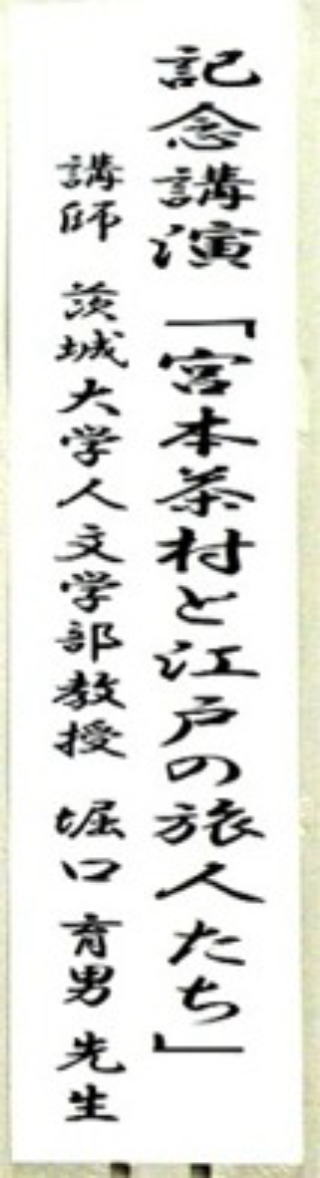 記念講演「宮本茶村と江戸の旅人たち」
講師 茨城大学人文学部教授 堀口 育男 先生